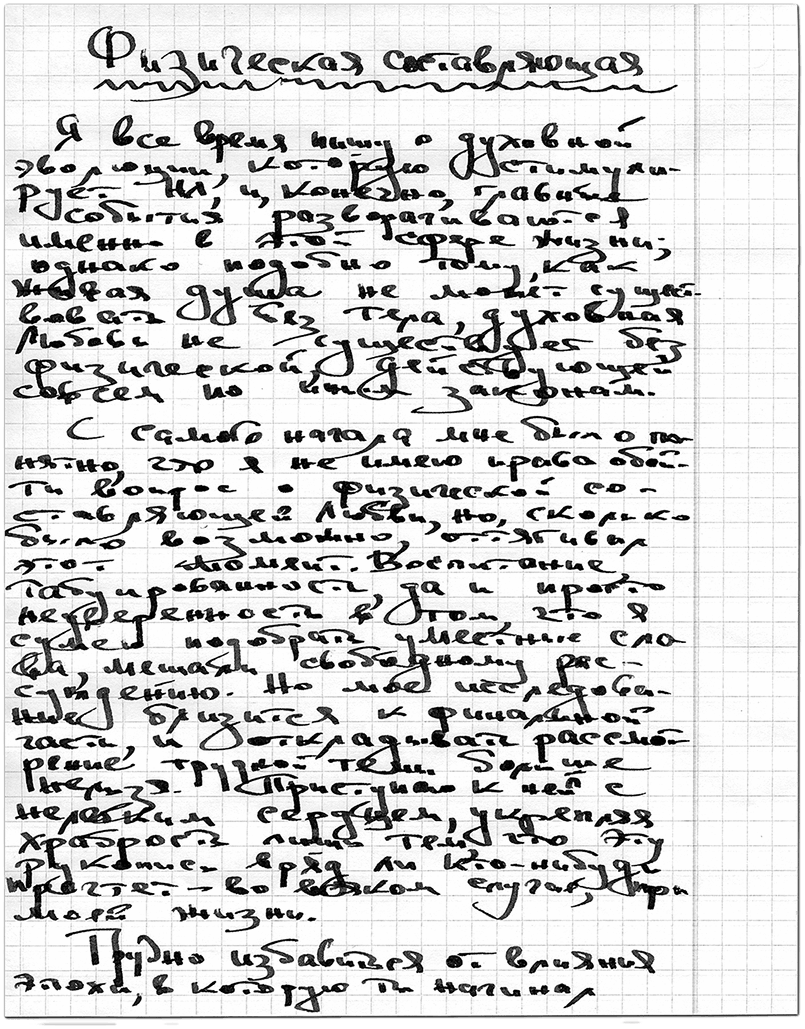 Физическая составляющая
Я все время пишу о духовной
эволюции, которую стимули-
рует НЛ, и, конечно, главные
события разворачиваются
именно в этой сфере жизни;
однако подобно тому, как
живая душа не может сущест-
вовать без тела, духовная
Любовь не существует без
физической, действующей
совсем по иным законам.
С самого начала мне было по-
нятно, что я не имею права обой-
ти вопрос о физической со-
ставляющей Любви, но, сколько
было возможно, оттягивал
этот момент. Воспитание,
табуированность, да и просто
неуверенность в том, что я
сумею подобрать уместные сло-
ва, мешали свободному рас-
суждению. Но мое исследова-
ние близится к финальной
части, и откладывать рассмот-
рение трудной темы больше
нельзя. Приступаю к ней с
нелегким сердцем, укрепляя
храбрость лишь тем, что эту
рукопись вряд ли кто-нибудь
прочтет – во всяком случае, при
моей жизни.
Трудно избавиться от влияния
эпохи, в которую ты начинал